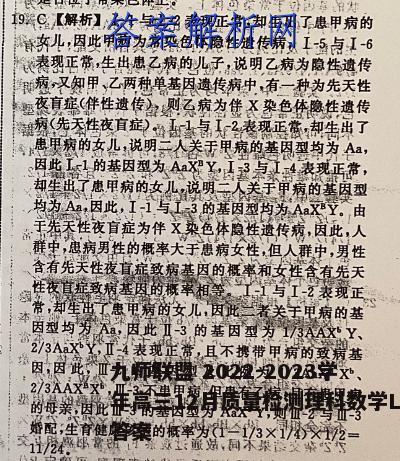 19. C 【解析】
表现正常,却生出了患甲病的
女儿,因此甲病为常染色体隐性遗传病,Ⅰ-5 与Ⅰ-6
表现正常,生出患乙病的儿子,说明乙病为隐性遗传
病,又知甲、乙两种单基因遗传病中,有一种为先天性
夜盲症(伴性遗传),则乙病为伴 X 染色体隐性遗传
病(先天性夜盲症)。Ⅰ-1 与Ⅰ-2 表现正常,却生出了
患甲病的女儿,说明二人关于甲病的基因型均为 Aa,
因此Ⅰ-1 的基因型为 AaXᴮY,Ⅰ-3 与Ⅰ-4 表现正常,
却生出了患甲病的女儿,说明二人关于甲病的基因型
均为 Aa,因此,Ⅰ-1 与Ⅰ-3 的基因型均为 AaXᴮY。由
于先天性夜盲症为伴 X 染色体隐性遗传病,因此,人
群中,患病男性的概率大于患病女性,但人群中,男性
含有先天性夜盲症致病基因的概率和女性含有先天
性夜盲症致病基因的概率相等。Ⅰ-1 与Ⅰ-2 表现正
常,却生出了患甲病的女儿,因此二者关于甲病的基
因型均为 Aa,因此Ⅱ-3 的基因型为 1/3AAXᵇY、
2/3AaXᵇY,Ⅱ-4 表现正常,且不携带甲病的致病基
因,因此,
2/3AAXᴮXᵇ
的母亲,因此
与Ⅲ-3
婚配,生育健
的概率为(1-1/3×1/4)×1/2=
11/24。
答案解析网
九师联盟 2022-2023学
年高三12月质量检测理科数学L
答案